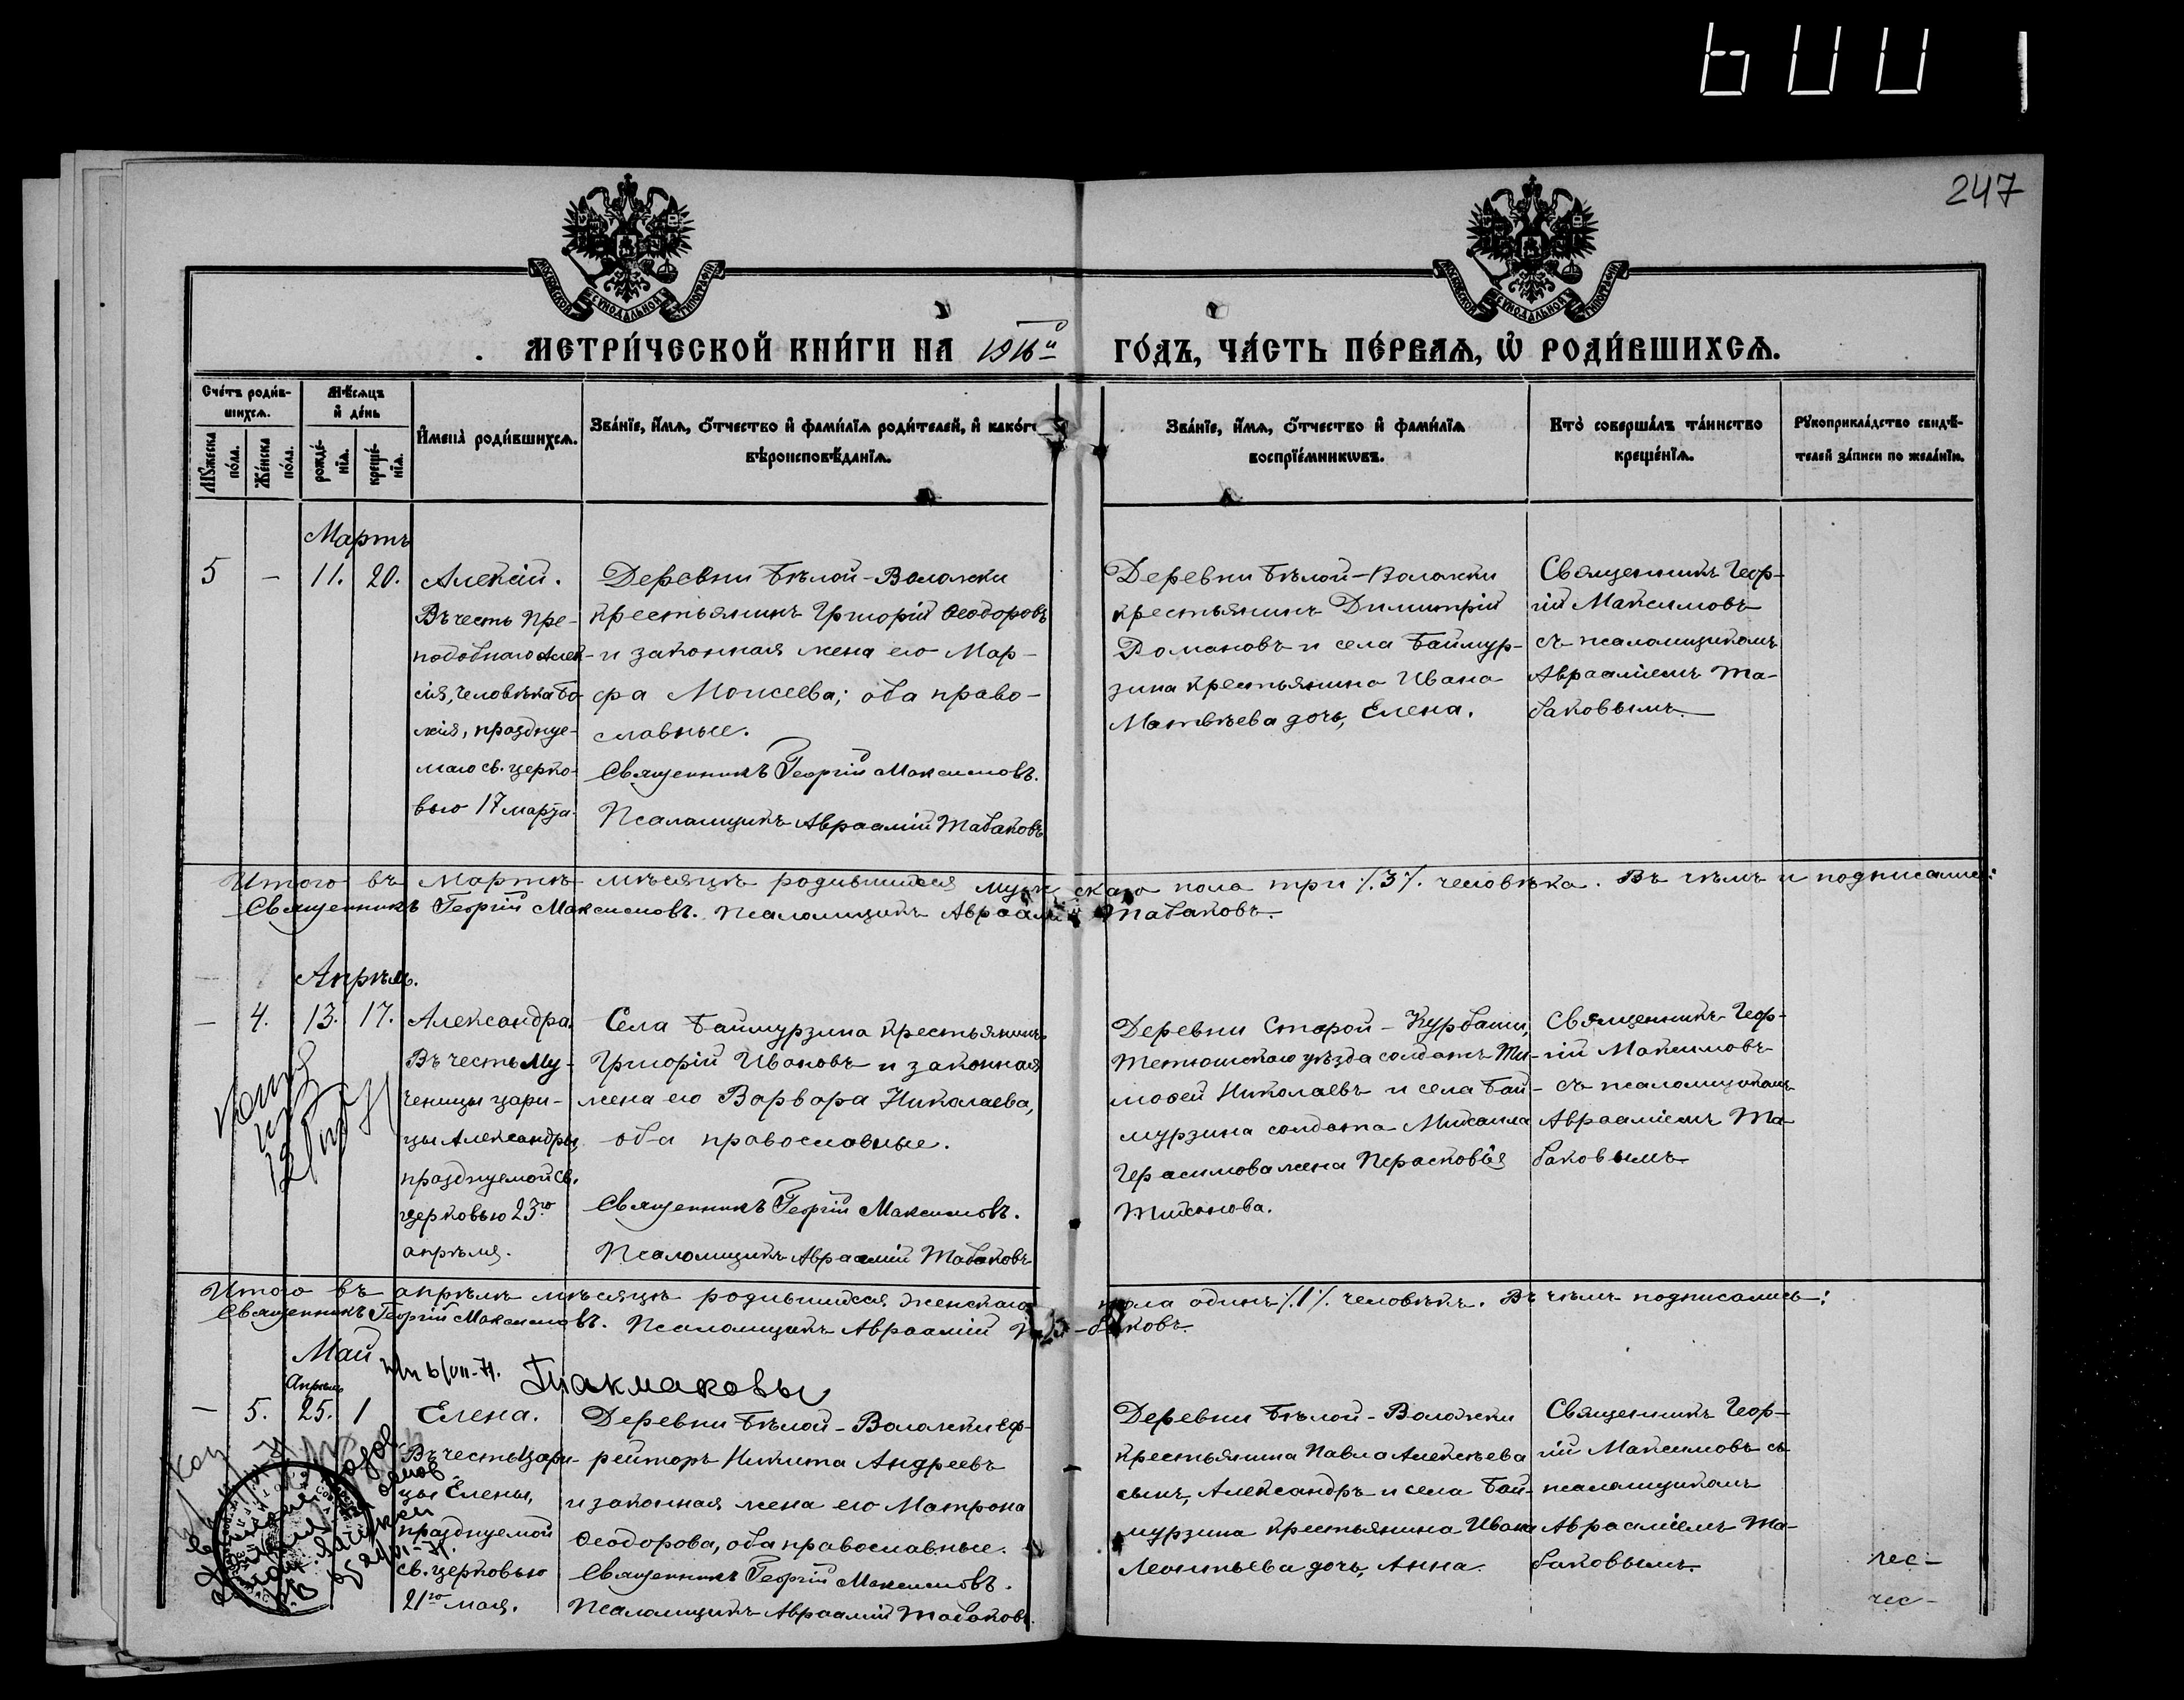 247
МОСКОВСКОЙ СѴНОДАЛЬНОЙ ТИПОГРАФІИ
МОСКОВСКОЙ СѴНОДАЛЬНОЙ ТИПОГРАФІИ
МЕТРИ́ЧЕСКОЙ КНИ́ГИ НА 1916й ГО́ДЪ, ЧА́СТЬ ПЕ́РВАѦ, Ѡ҆ РОДИ́ВШИХСѦ.
Сче́тъ роди́в-
шихсѧ.
Мѣ́сѧцъ
и҆ де́нь
Мꙋ́жеска по́ла.
Же́нска по́ла.
рожде́-
нїѧ.
креще́-
нїѧ.
И҆мена̀ роди́вшихсѧ.
Зва́нїе, и҆́мѧ, ѻ҆́тчество и҆ фами́лїѧ роди́телей, и҆ како́гѡ
вѣроисповѣ́данїѧ.
Зва́нїе, и҆́мѧ, ѻ҆́тчество и҆ фами́лїѧ
воспрїе́мникѡвъ.
Кто̀ соверша́лъ та́инство
креще́нїѧ.
Рꙋкоприкла́дство свидѣ́-
телей за́писи по жела́нїю.
Мартъ
5 — 11. 20.
Алексій.
Въ честь Пре-
подобнаго Алек-
сія, человѣка Бо-
жія, празднуе-
маго св. церко-
вью 17 марта.
Деревни Бѣлой-Воложки
крестьянинъ Григорій Ѳеодоровъ
и законная жена его Мар-
ѳа Моисеева; оба право-
славные.
Священникъ Георгій Максимовъ.
Псаломщикъ Авраамій Табаковъ
Деревни Бѣлой-Воложки
крестьянинъ Димитрій
Романовъ и села Баймур-
зина крестьянина Ивана
Матвѣева дочь, Елена.
Священникъ Геор-
гій Максимовъ
съ псаломщикомъ
Аврааміемъ Та-
баковымъ.
Итого въ Мартѣ мѣсяцѣ родившихся мужскаго пола три ٪3٪ человѣка. Въ чемъ и подписались:
Священникъ Георгій Максимовъ. Псаломщикъ Авраамій Табаковъ.
Апрѣль.
— 4. 13. 17.
Александра.
Въ честь Му-
ченицы цари-
цы Александры,
празднуемой св.
церковью 23го
апрѣля.
Села Баймурзина крестьянинъ
Григорій Ивановъ и законная
жена его Варвара Николаева,
оба православные.
Священникъ Георгій Максимовъ.
Псаломщикъ Авраамій Табаковъ
Деревни Старой-Курбаши,
Тетюшскаго уѣзда солдатъ Ти-
моѳей Николаевъ и села Бай-
мурзина солдата Михаила
Герасимова жена Прасковія
Тихонова.
Священникъ Геор-
гій Максимовъ
съ псаломщикомъ
Аврааміемъ Та-
баковымъ.
Итого въ апрѣлѣ мѣсяцѣ родившихся женскаго пола одинъ ٪1٪ человѣкъ. Въ чемъ подписались:
Священникъ Георгій Максимовъ. Псаломщикъ Авраамій Табаковъ.
Май
Апрѣль
Такмаковы
— 5. 25. 1
Елена.
Въ честь Цари-
цы Елены,
празднуемой
св. церковью
21го мая.
Деревни Бѣлой-Воложки еф-
рейторъ Никита Андреевъ
и законная жена его Матрона
Ѳеодорова, оба православные.
Священникъ Георгій Максимовъ.
Псаломщикъ Авраамій Табаковъ.
Деревни Бѣлой-Воложки
крестьянина Павла Алексѣева
сынъ, Александръ и села Бай-
мурзина крестьянина Ивана
Леонтьева дочь, Анна.
Священникъ Геор-
гій Максимовъ съ
псаломщикомъ
Аврааміемъ Та-
баковымъ.